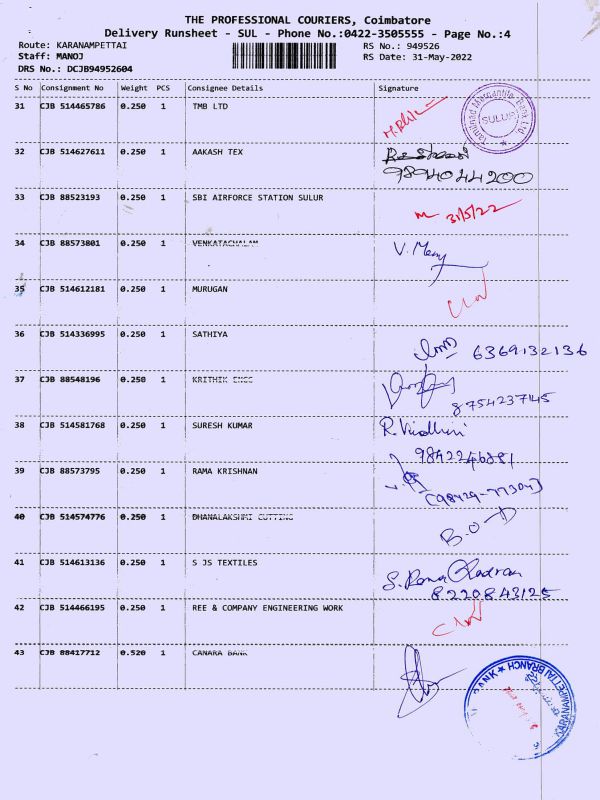 THE PROFESSIONAL COURIERS, Coimbatore
Delivery Runsheet - SUL - Phone No.:0422-3505555 - Page No.:4
Route: KARANAMPETTAI RS No.: 949526
Staff: MANOJ RS Date: 31-May-2022
DRS No.: DCJB94952604
S No Consignment No Weight PCS Consignee Details Signature
31 CJB 514465786 0.250 1 TMB LTD
Tamilnad Mercantile Bank Ltd. SULUR
32 CJB 514627611 0.250 1 AAKASH TEX
9894044200
33 CJB 88523193 0.250 1 SBI AIRFORCE STATION SULUR
31/5/22
34 CJB 88573801 0.250 1 VENKATACHALAM
V. Meny
35 CJB 514612181 0.250 1 MURUGAN
36 CJB 514336995 0.250 1 SATHIYA
6369132136
37 CJB 88548196 0.250 1 KRITHIK ENGG
8754237145
38 CJB 514581768 0.250 1 SURESH KUMAR
R. Vidhini
9842246281
39 CJB 88573795 0.250 1 RAMA KRISHNAN
(98429-77304)
40 CJB 514574776 0.250 1 DHANALAKSHMI CUTTING
B.O-D
41 CJB 514613136 0.250 1 S JS TEXTILES
8220843125
42 CJB 514466195 0.250 1 REE & COMPANY ENGINEERING WORK
43 CJB 88417712 0.520 1 CANARA BANK
KARANAMPETTAI BRANCH